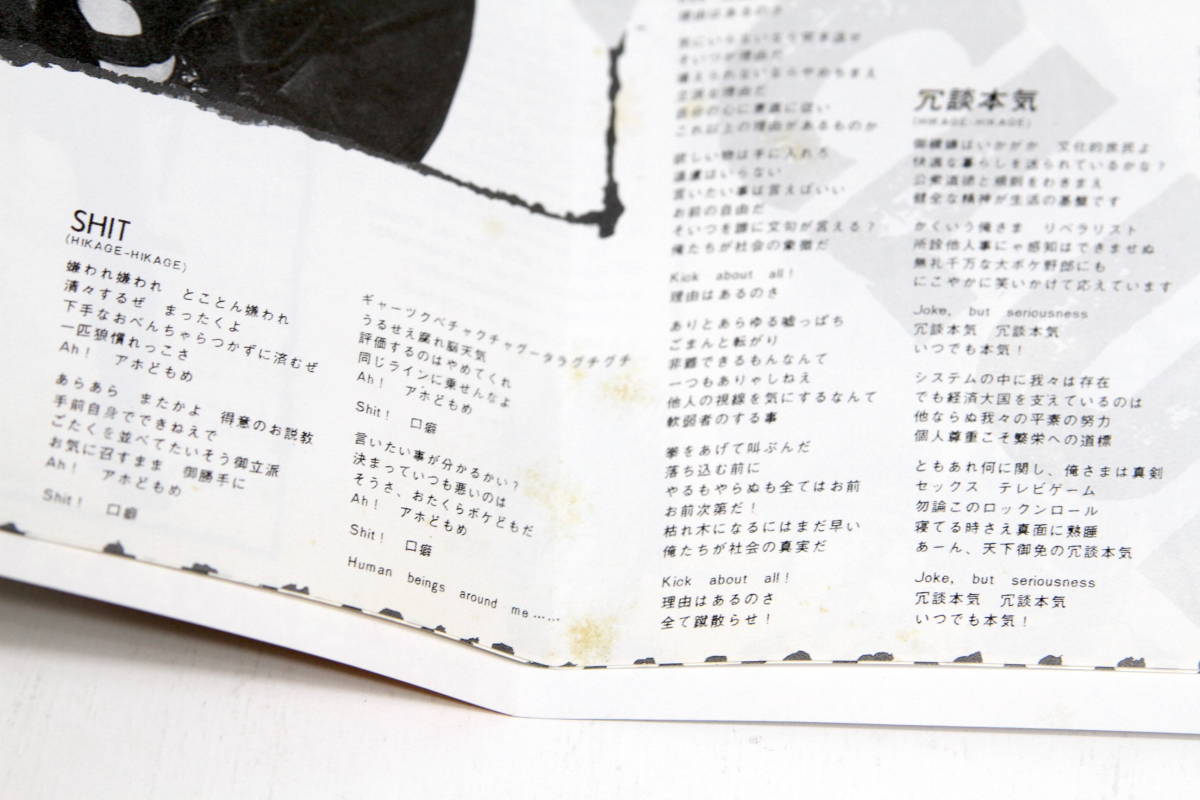 SHIT
(HIKAGE-HIKAGE)
嫌われ嫌われ　とことん嫌われ
清々するぜ　まったくよ
下手なおべんちゃらつかずに済むぜ
一匹狼慣れっこさ
Ah!　アホどもめ
あらあら　またかよ　得意のお説教
手前自身でできねえで
ごたくを並べてたいそう御立派
お気に召すまま　御勝手に
Ah!　アホどもめ
Shit!　口癖
ギャーツクベチャクチャヴータラグチグチ
うるせえ腐れ脳天気
評価するのはやめてくれ
同じラインに乗せんなよ
Ah!　アホどもめ
Shit!　口癖
言いたい事が分かるかい？
決まっていつも悪いのは
そうさ、おたくらボケどもだ
Ah!　アホどもめ
Shit!　口癖
Human beings around me……
理由はあるのさ
そいつが理由だ
立派な理由だ
これ以上の理由があるものか
欲しい物は手に入れろ
遠慮はいらない
言いたい事は言えばいい
お前の自由だ
そいつを誰に文句が言える？
俺たちが社会の象徴だ
Kick about all!
理由はあるのさ
ありとあらゆる嘘っぱち
ごまんと転がり
非難できるもんなんて
一つもありゃしねえ
他人の視線を気にするなんて
軟弱者のする事
拳をあげて叫ぶんだ
落ち込む前に
やるもやらぬも全てはお前
お前次第だ！
枯れ木になるにはまだ早い
俺たちが社会の真実だ
Kick about all!
理由はあるのさ
全て蹴散らせ！
冗談本気
(HIKAGE-HIKAGE)
御機嫌はいかがか　文化的庶民よ
快適な暮らしを送られているかな？
公衆道徳と規則をわきまえ
健全な精神が生活の基盤です
かくいう俺さま　リベラリスト
所詮他人事にゃ感知はできませぬ
無礼千万な大ボケ野郎にも
にこやかに笑いかけて応えています
Joke, but seriousness
冗談本気　冗談本気
いつでも本気！
システムの中に我々は存在
でも経済大国を支えているのは
他ならぬ我々の平素の努力
個人尊重こそ繁栄への道標
ともあれ何に関し、俺さまは真剣
セックス　テレビゲーム
勿論このロックンロール
寝てる時さえ真面に熟睡
あーん、天下御免の冗談本気
Joke, but seriousness
冗談本気　冗談本気
いつでも本気！